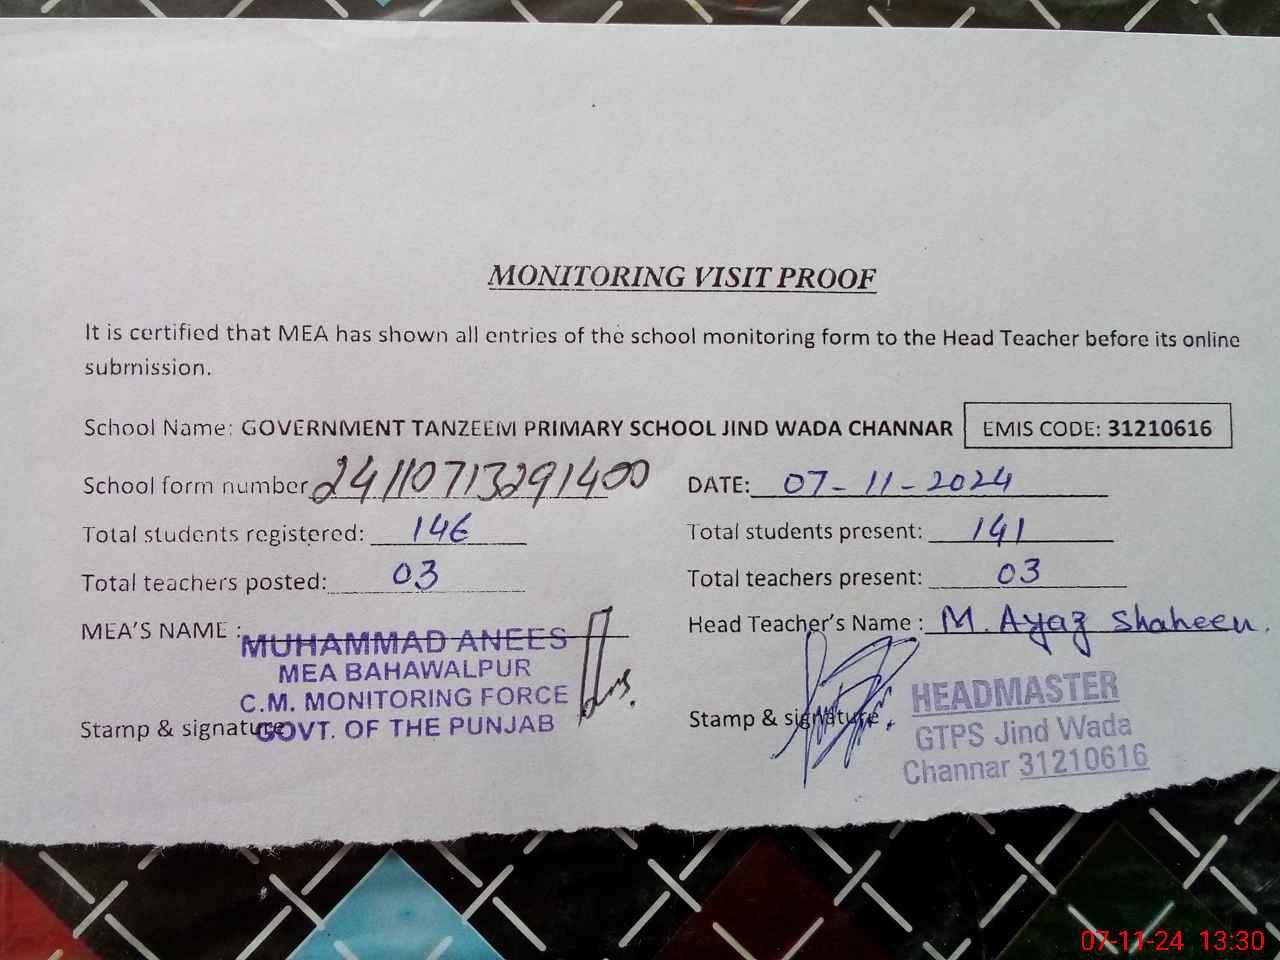 MONITORING VISIT PROOF
It is certified that MEA has shown all entries of the school monitoring form to the Head Teacher before its online
submission.
School Name: GOVERNMENT TANZEEM PRIMARY SCHOOL JIND WADA CHANNAR EMIS CODE: 31210616
School form number 24110713291400 DATE: 07-11-2024
Total students registered: 146 Total students present: 141
Total teachers posted: 03 Total teachers present: 03
MEA'S NAME : MUHAMMAD ANEES Head Teacher's Name : M. Ayaz Shaheen.
MEA BAHAWALPUR
C.M. MONITORING FORCE
GOVT. OF THE PUNJAB
Stamp & signature Stamp & signature
HEADMASTER
GTPS Jind Wada
Channar 31210616
07-11-24 13:30